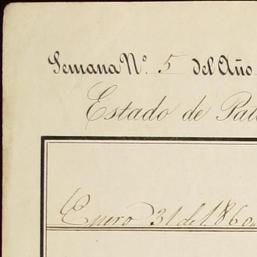 Semana Nº 5 del Año
Estado de Pat
Enero 31 de 1860